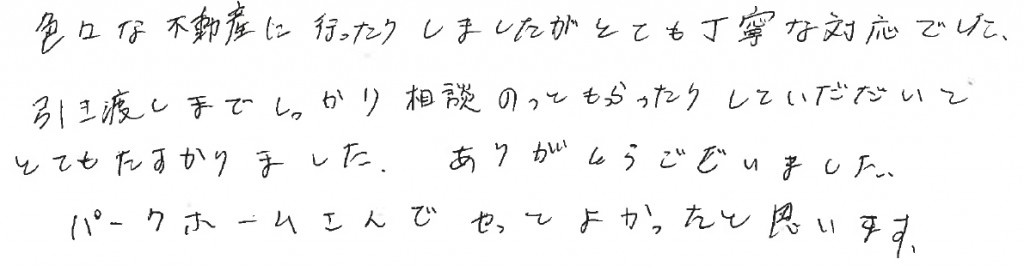 色々な不動産に行ったりしましたがとても丁寧な対応でした、
引き渡しまでしっかり相談のってもらったりしていだだいて
とてもたすかりました. ありがとうございました.
パークホームさんでやってよかったと思います.